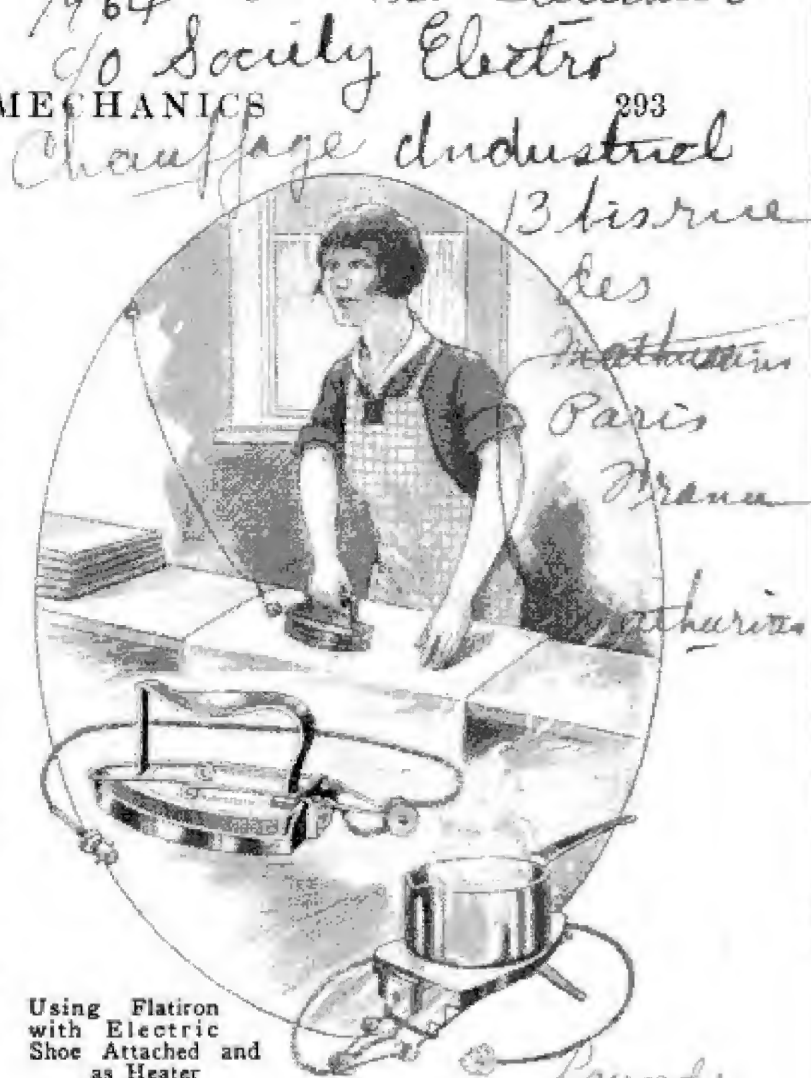 1964
c/o Society Electro
MECHANICS 293
Chauffage Industriel
13 bis rue
des
Mathurins
Paris
France
Mathurins
Using Flatiron
with Electric
Shoe Attached and
as Heater